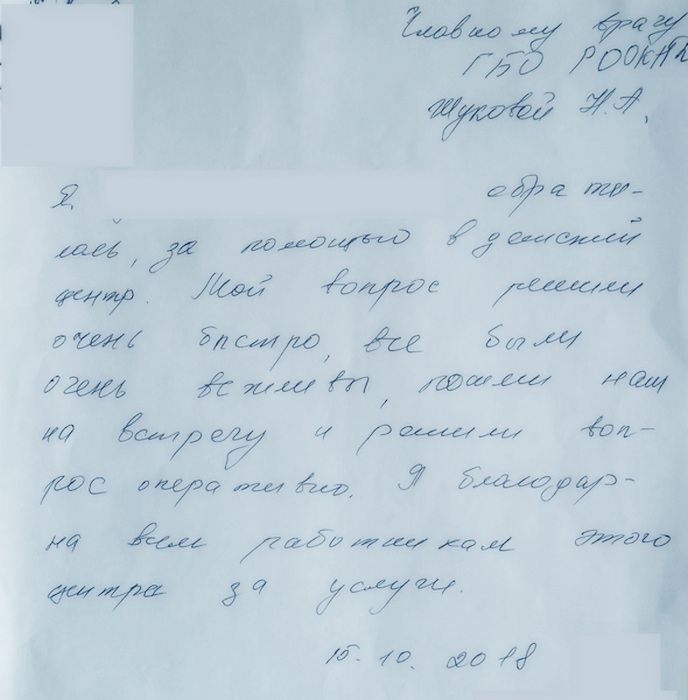 Главному врачу
ГБО РООКНБ
Жуковой Н.А.
Я, обрати-
лась, за помощью в детский
центр. Мой вопрос решили
очень быстро, все были
очень вежливы, пошли нам
на встречу и решили воп-
рос оперативно. Я благодар-
на всем работникам этого
центра за услуги.
15.10.2018